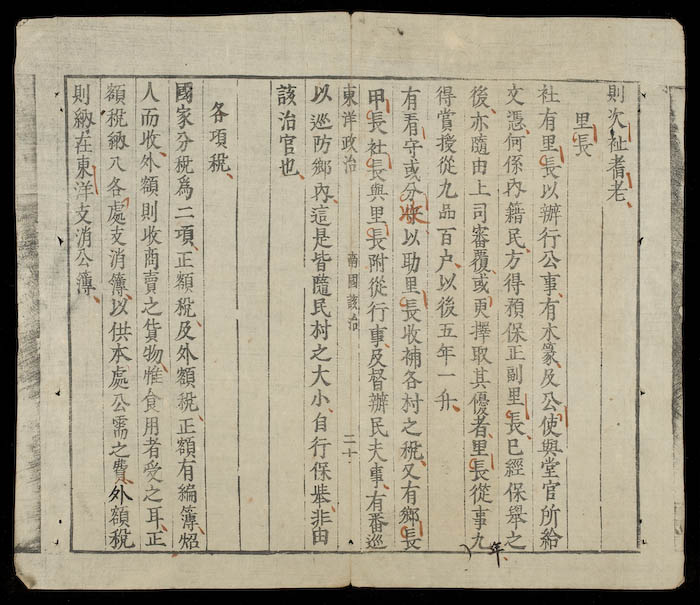 則次社耆老
里長
社有里長以辦行公事有木篆及公使與堂官所給
文憑何係內籍民方得預保正副里長已經保舉之
後亦隨由上司審覆或更擇取其優者里長從事九
年
得賞授從九品百户以後五年一升
有看守或分收以助里長收補各村之稅又有鄉長
甲長社長與里長附從行事及督辦民夫事有番巡
東洋政治 南國該治 二十
以巡防鄉內這是皆隨民村之大小自行保舉非由
該治官也
各項稅
國家分稅爲二項正額稅及外額稅正額有編簿炤
人而收外額則收商賣之貨物惟食用者受之耳正
額稅納入各處支消簿以供本處公需之費外額稅
則納在東洋支消公簿